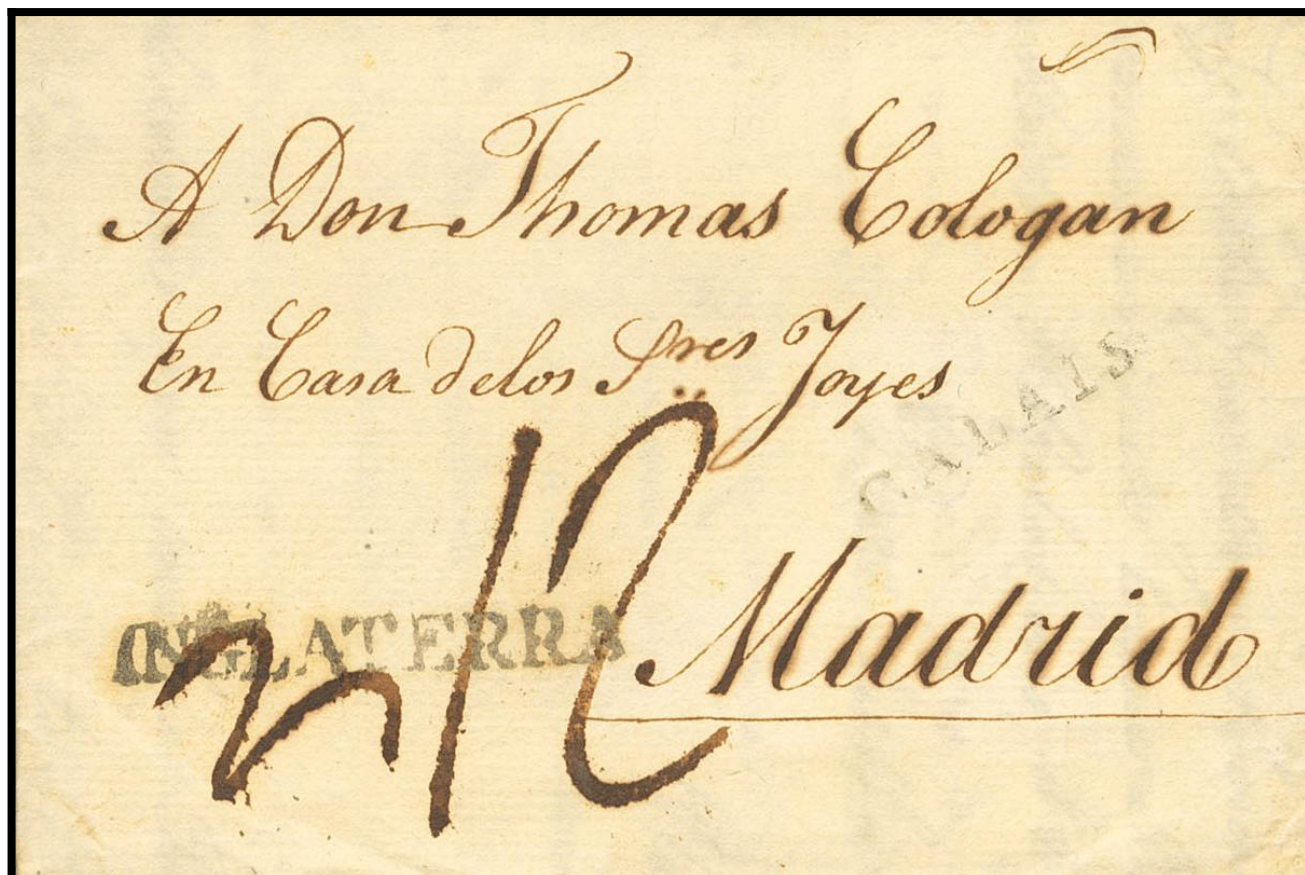 A Don Thomas Cologan
En Casa de los S.res Joyes
CALAIS
INGLATERRA
Madrid